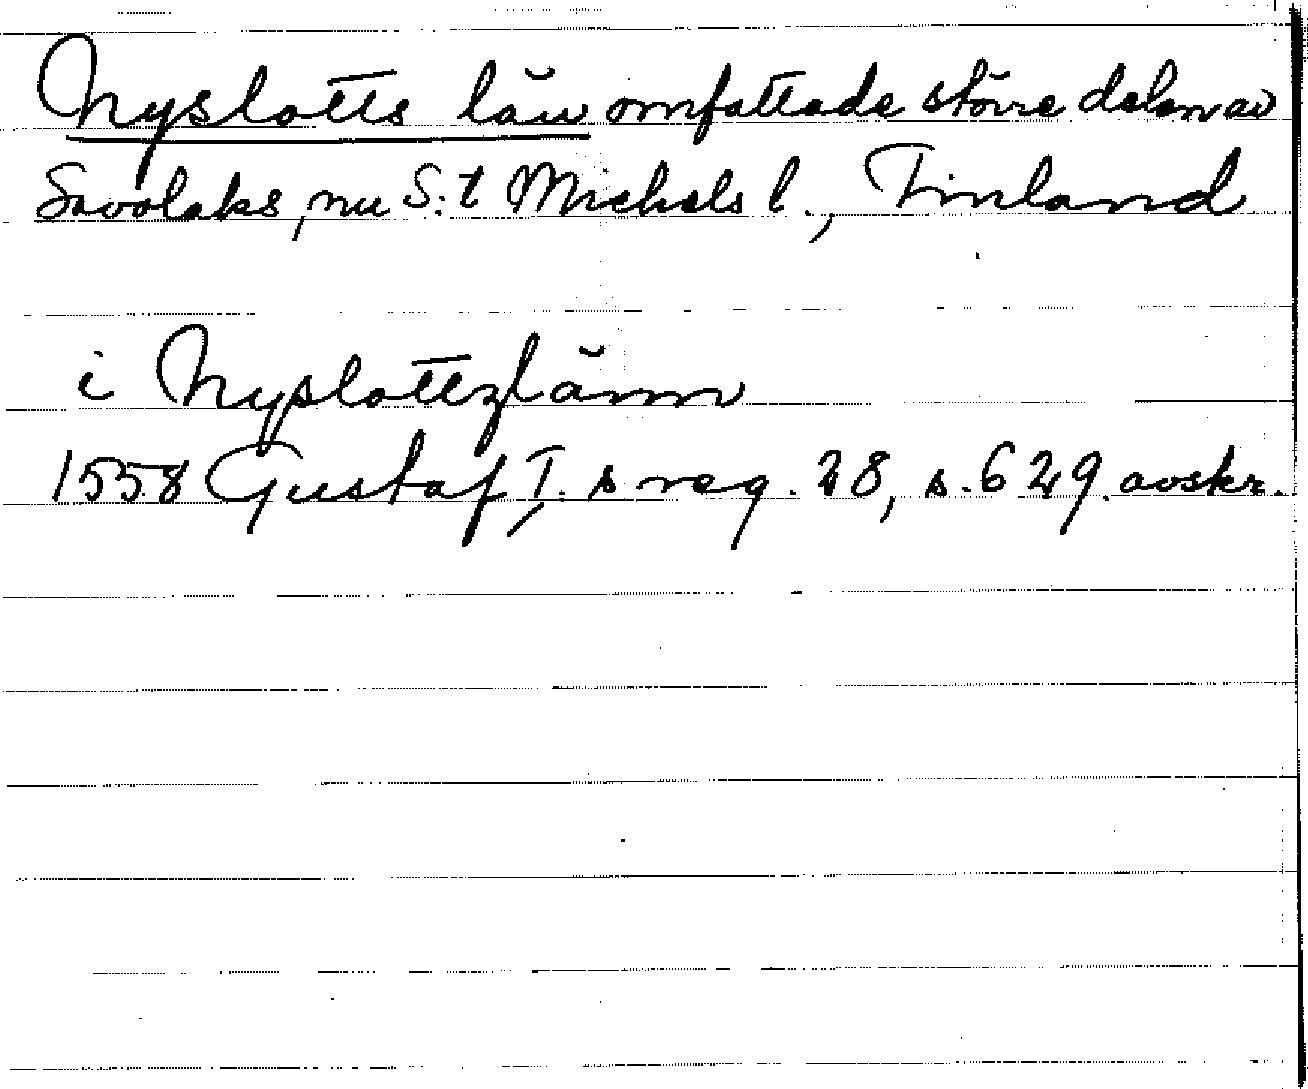 Nyslotts län omfattade större delen av
Savolaks, nu S:t Michels l., Finland
i Nyslottzlänn
1558 Gustaf I:s reg. 28, s. 629. avskr.